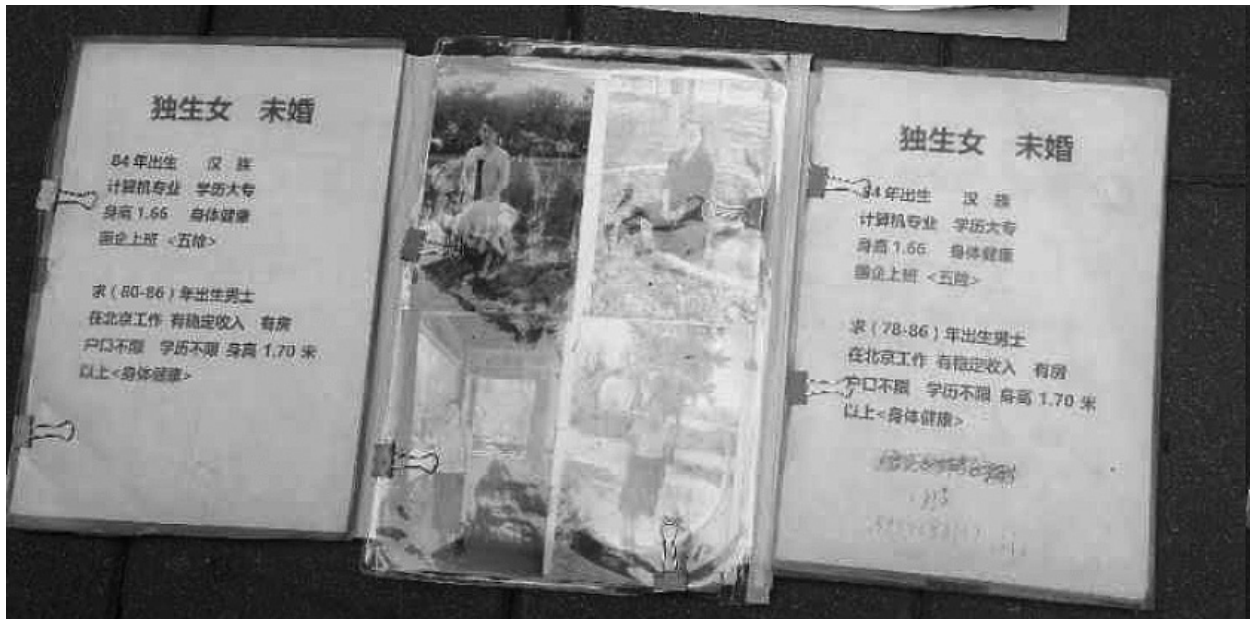 独生女 未婚
84年出生 汉 族
计算机专业 学历大专
身高1.66 身体健康
国企上班 <五险>
求(80-86)年出生男士
在北京工作 有稳定收入 有房
户口不限 学历不限 身高1.70米
以上<身体健康>
独生女 未婚
84年出生 汉 族
计算机专业 学历大专
身高1.66 身体健康
国企上班 <五险>
求(78-86)年出生男士
在北京工作 有稳定收入 有房
户口不限 学历不限 身高1.70米
以上<身体健康>